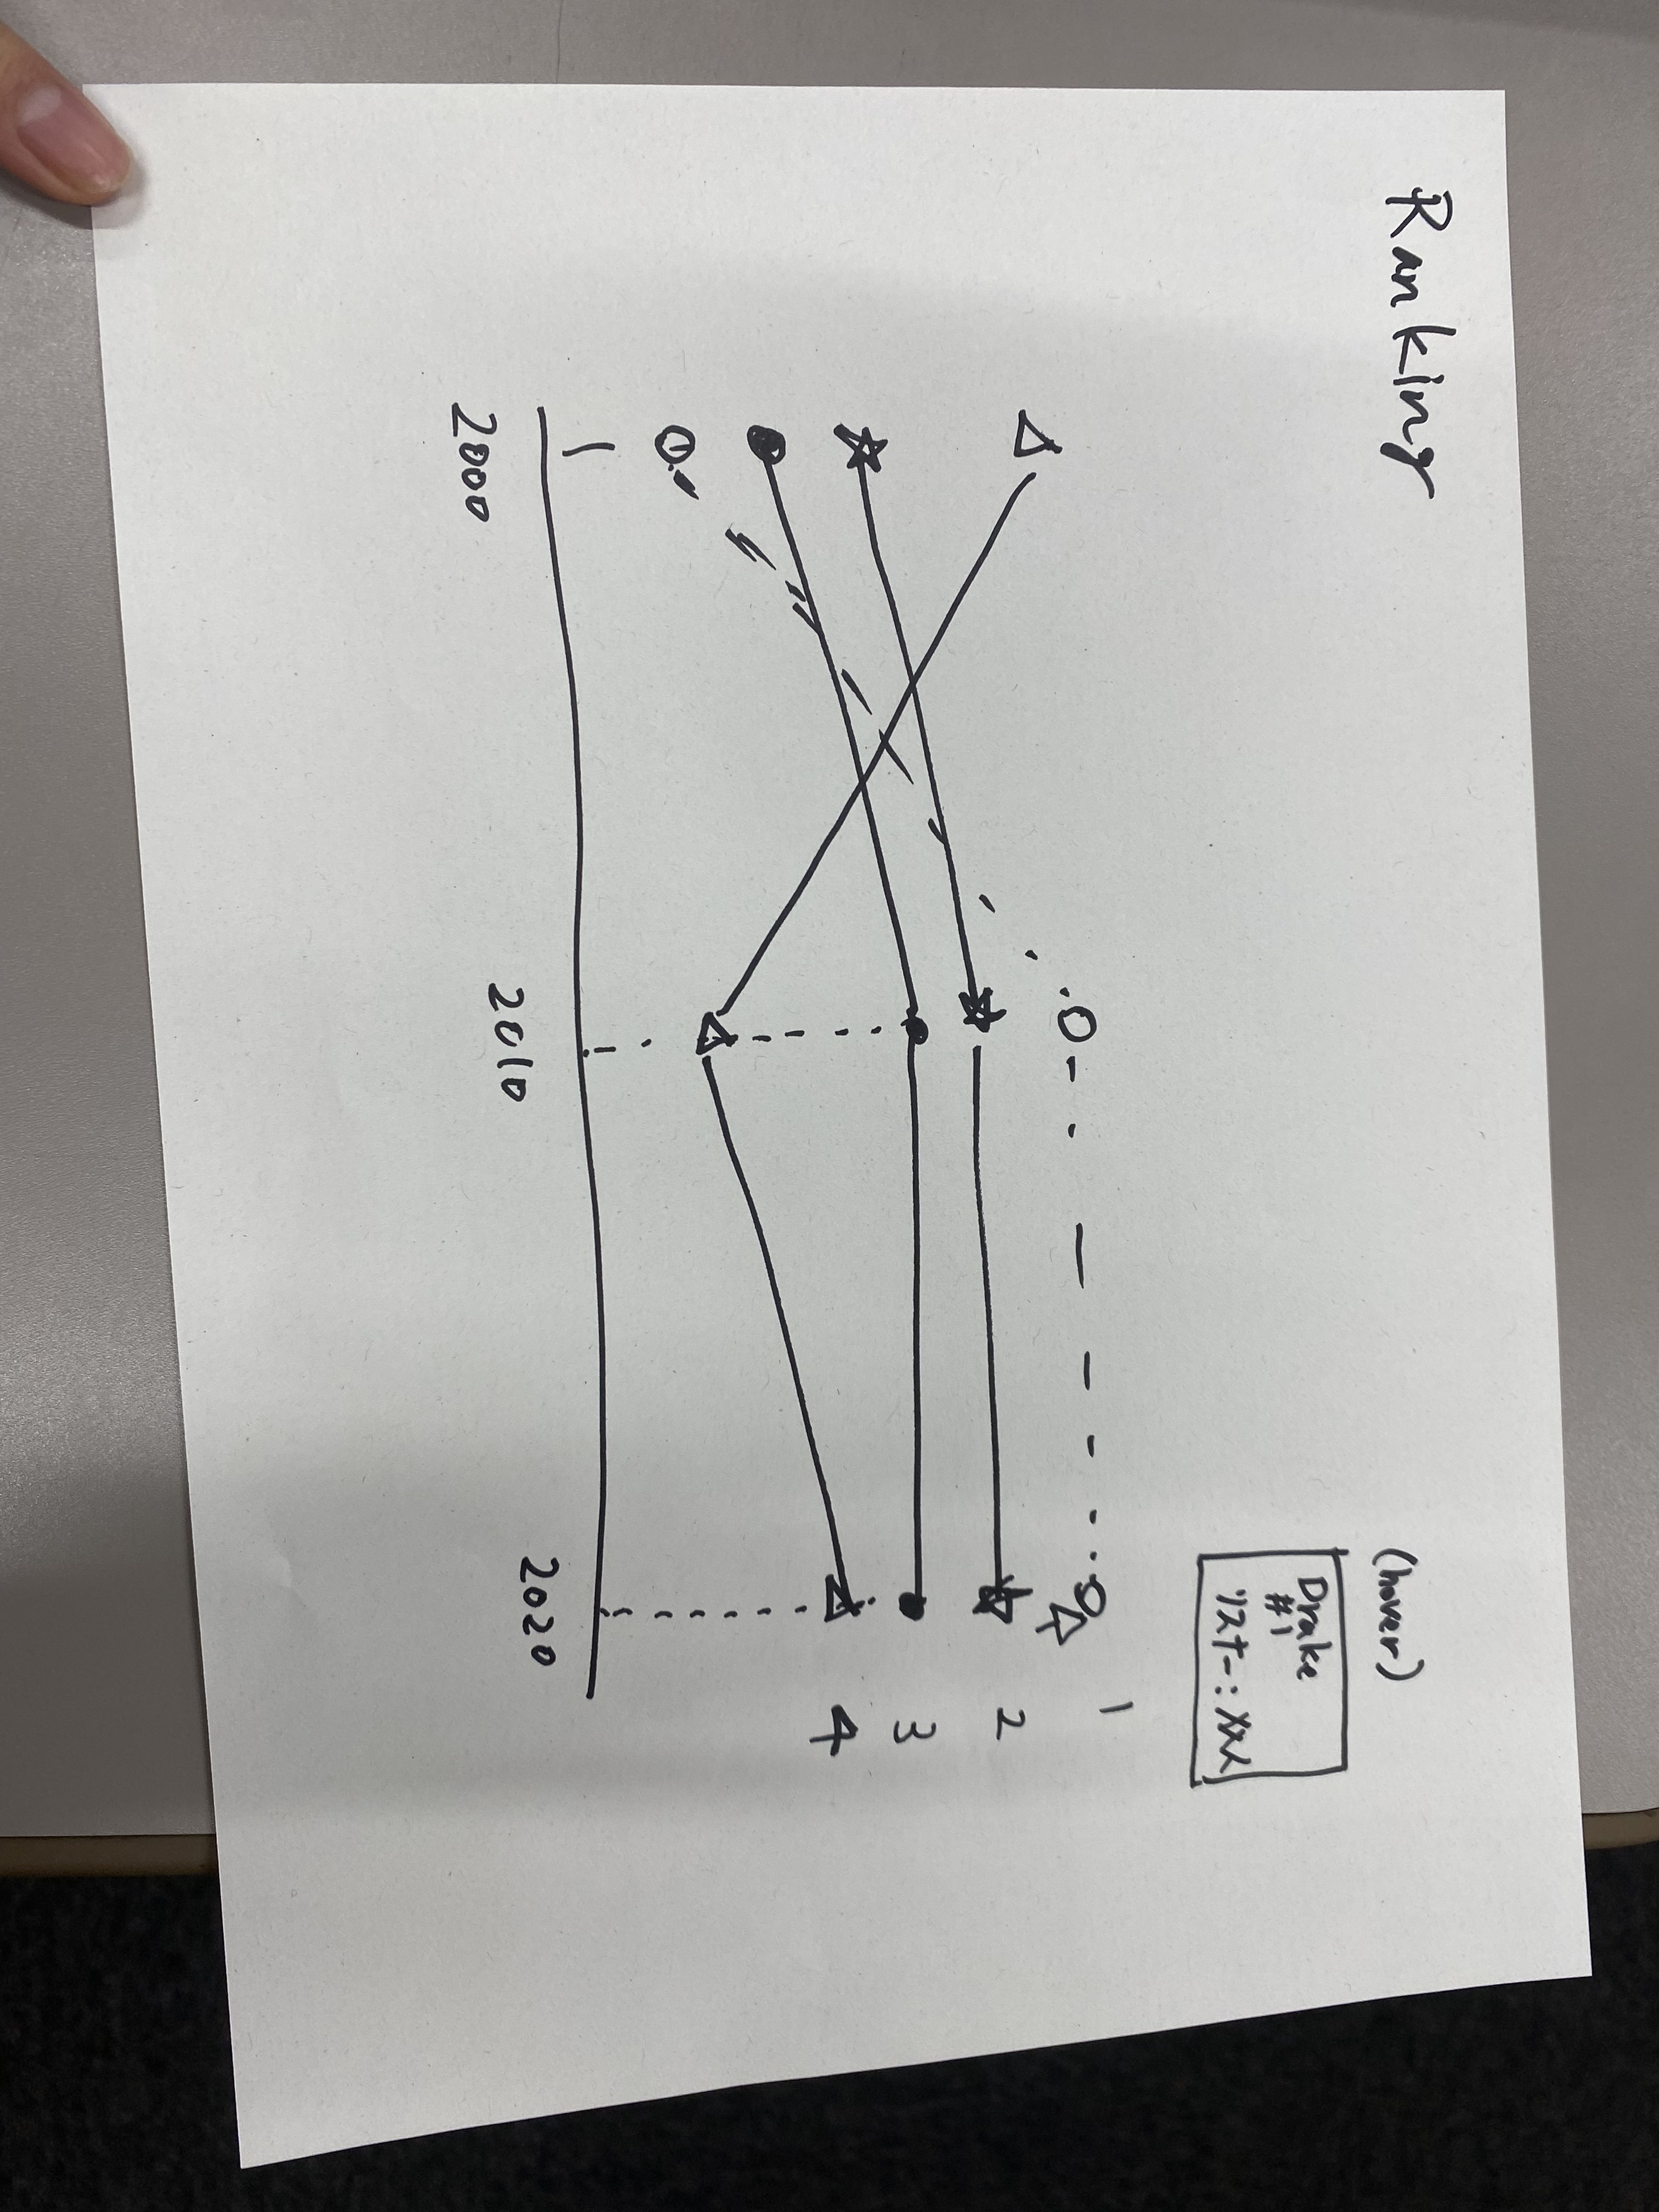 Ranking
(hover)
Drake
#1
リスナー:XXX
1
2
3
4
2000
2010
2020